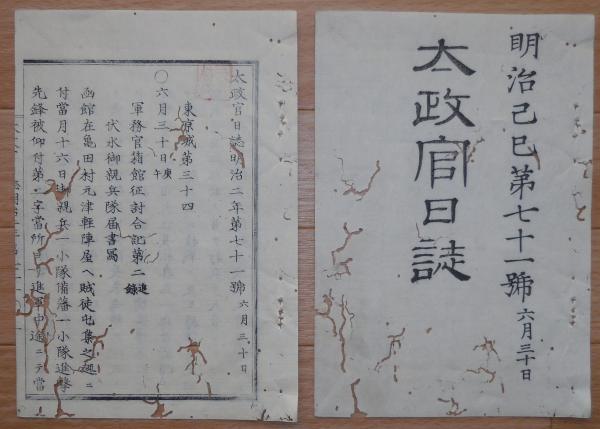 明治己巳第七十一號 六月三十日
太政官日誌
太政官日誌明治二年第七十一號 六月三十日
東京城第三十四
〇六月三十日庚午
軍務官箱館征討合記第二 進錄
伏水御親兵隊届書寫
函館在亀田村元津軽陣屋ヘ賊徒屯集之趣ニ
付當月十六日御親兵一小隊備藩一小隊進撃
先鋒被仰付第 字當所 進軍中途ニテ當